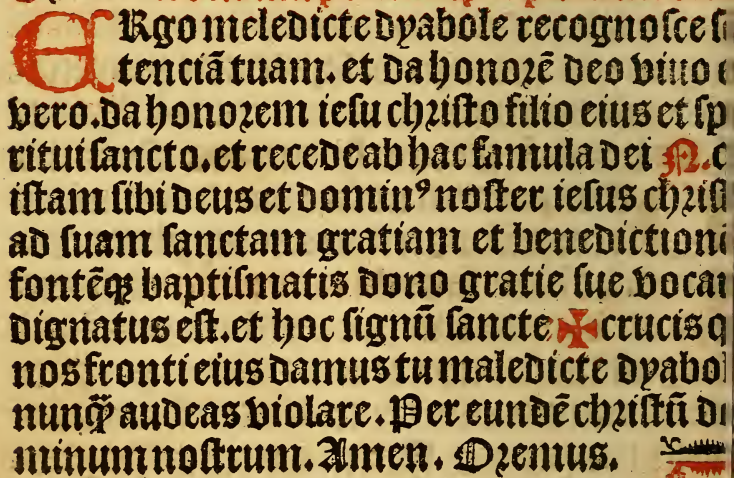 ERgo meledicte dyabole recognosce s
tenciā tuam. et da honorē deo viuo e
vero. da honorem iesu christo filio eius et sp
ritui sancto. et recede ab hac famula dei N. c
istam sibi deus et dominꝰ noster iesus christ
ad suam sanctam gratiam et benediction
fontēqꝫ baptismatis dono gratie sue vocar
dignatus est. et hoc signū sancte ✠ crucis q
nos fronti eius damus tu maledicte dyabol
nunq̄ audeas violare. Per eundē christū do
minum nostrum. Amen. Oremus.